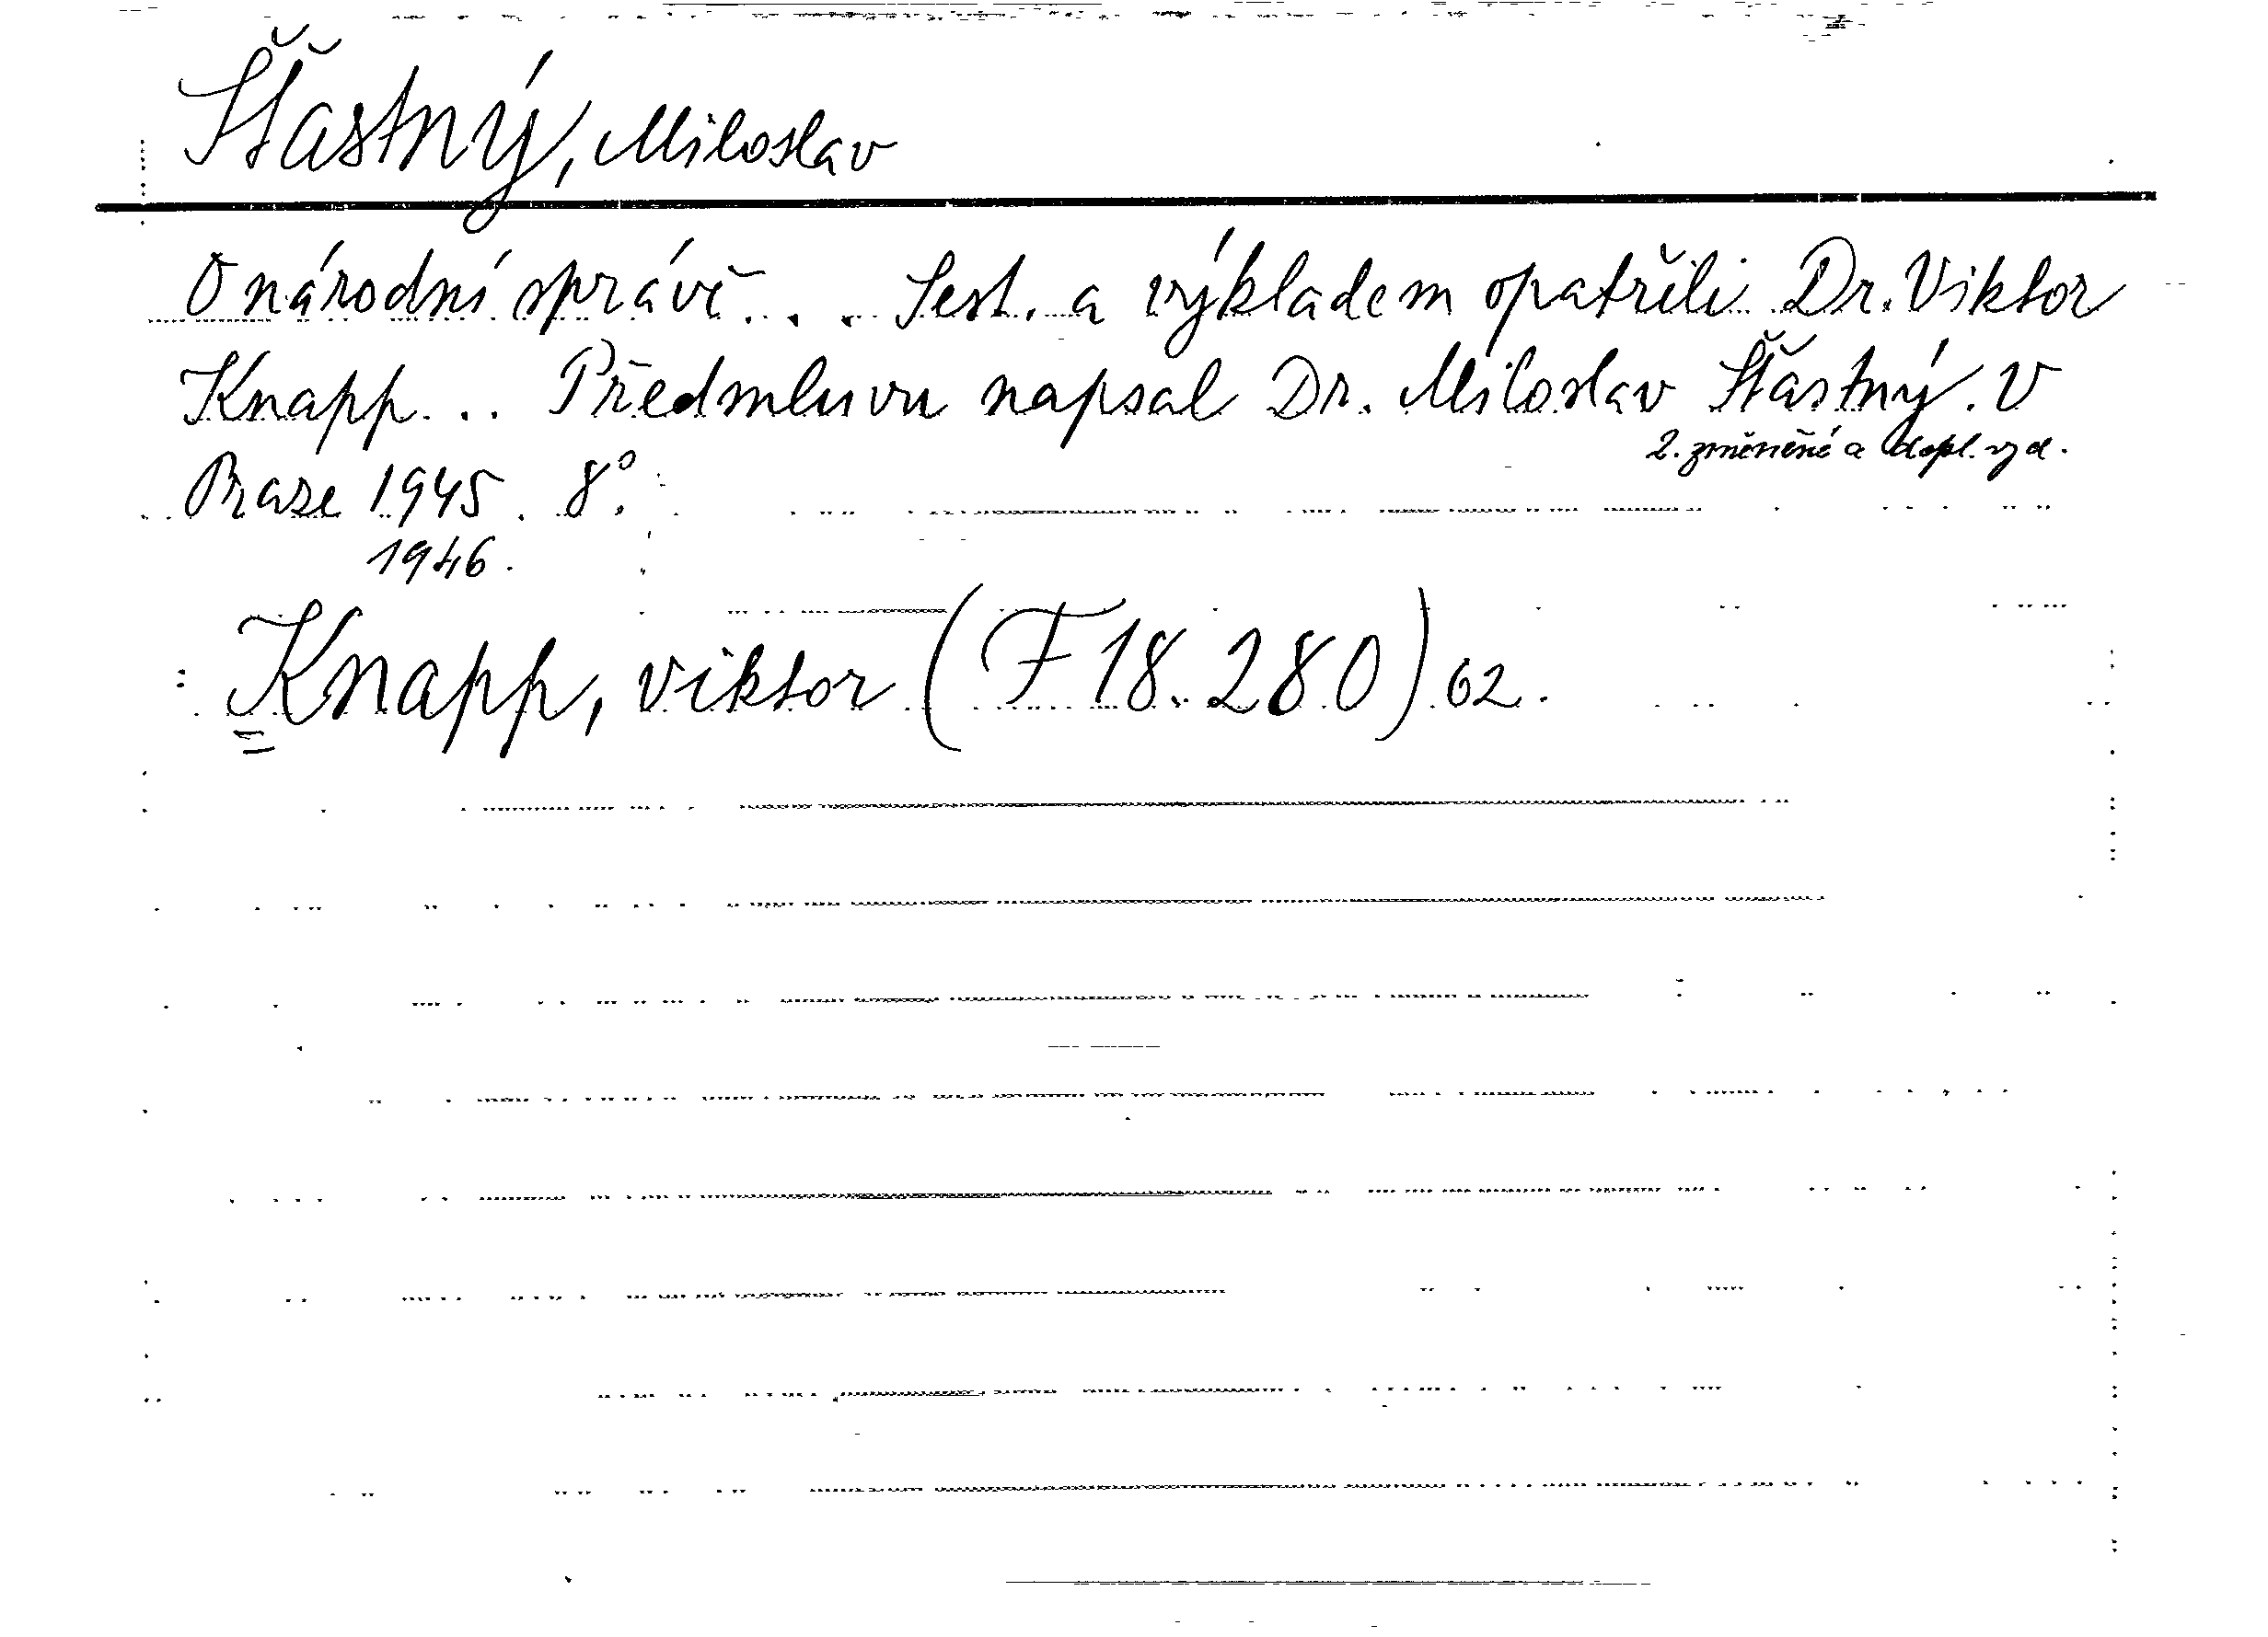 Šťastný, Miloslav
O národní správě... Sest. a výkladem opatřili Dr. Viktor
Knapp... Předmluvu napsal Dr. Miloslav Šťastný. V
2. změněné a dopl. vyd.
Praze 1945. 8°.
1946.
Knapp, Viktor (F 18.280) 62.